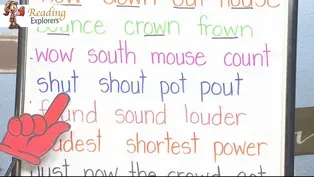 Reading
Explorers
now down out house
bounce crown frown
wow south mouse count
shut shout pot pout
found sound louder
loudest shortest power
just now the crowd got